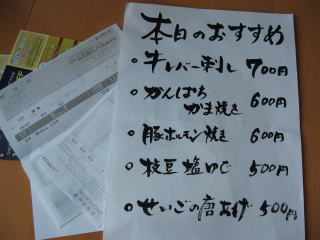 本日のおすすめ
○牛レバー刺し 700円
○かんぱち
かま焼き 600円
○豚ホルモン焼き 600円
○枝豆塩ゆで 500円
○せいごの唐あげ 500円